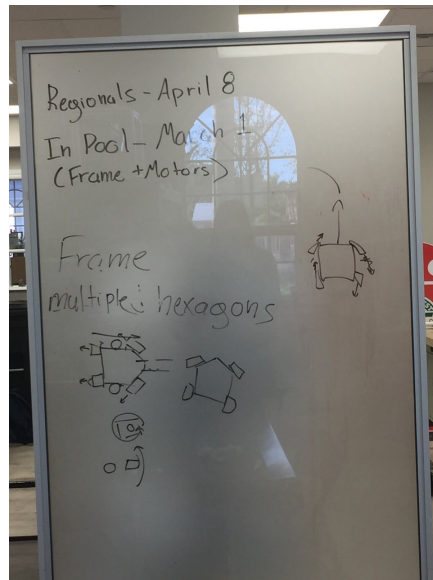 Regionals - April 8
In Pool - March 1
(Frame + Motors)
Frame
multiple hexagons